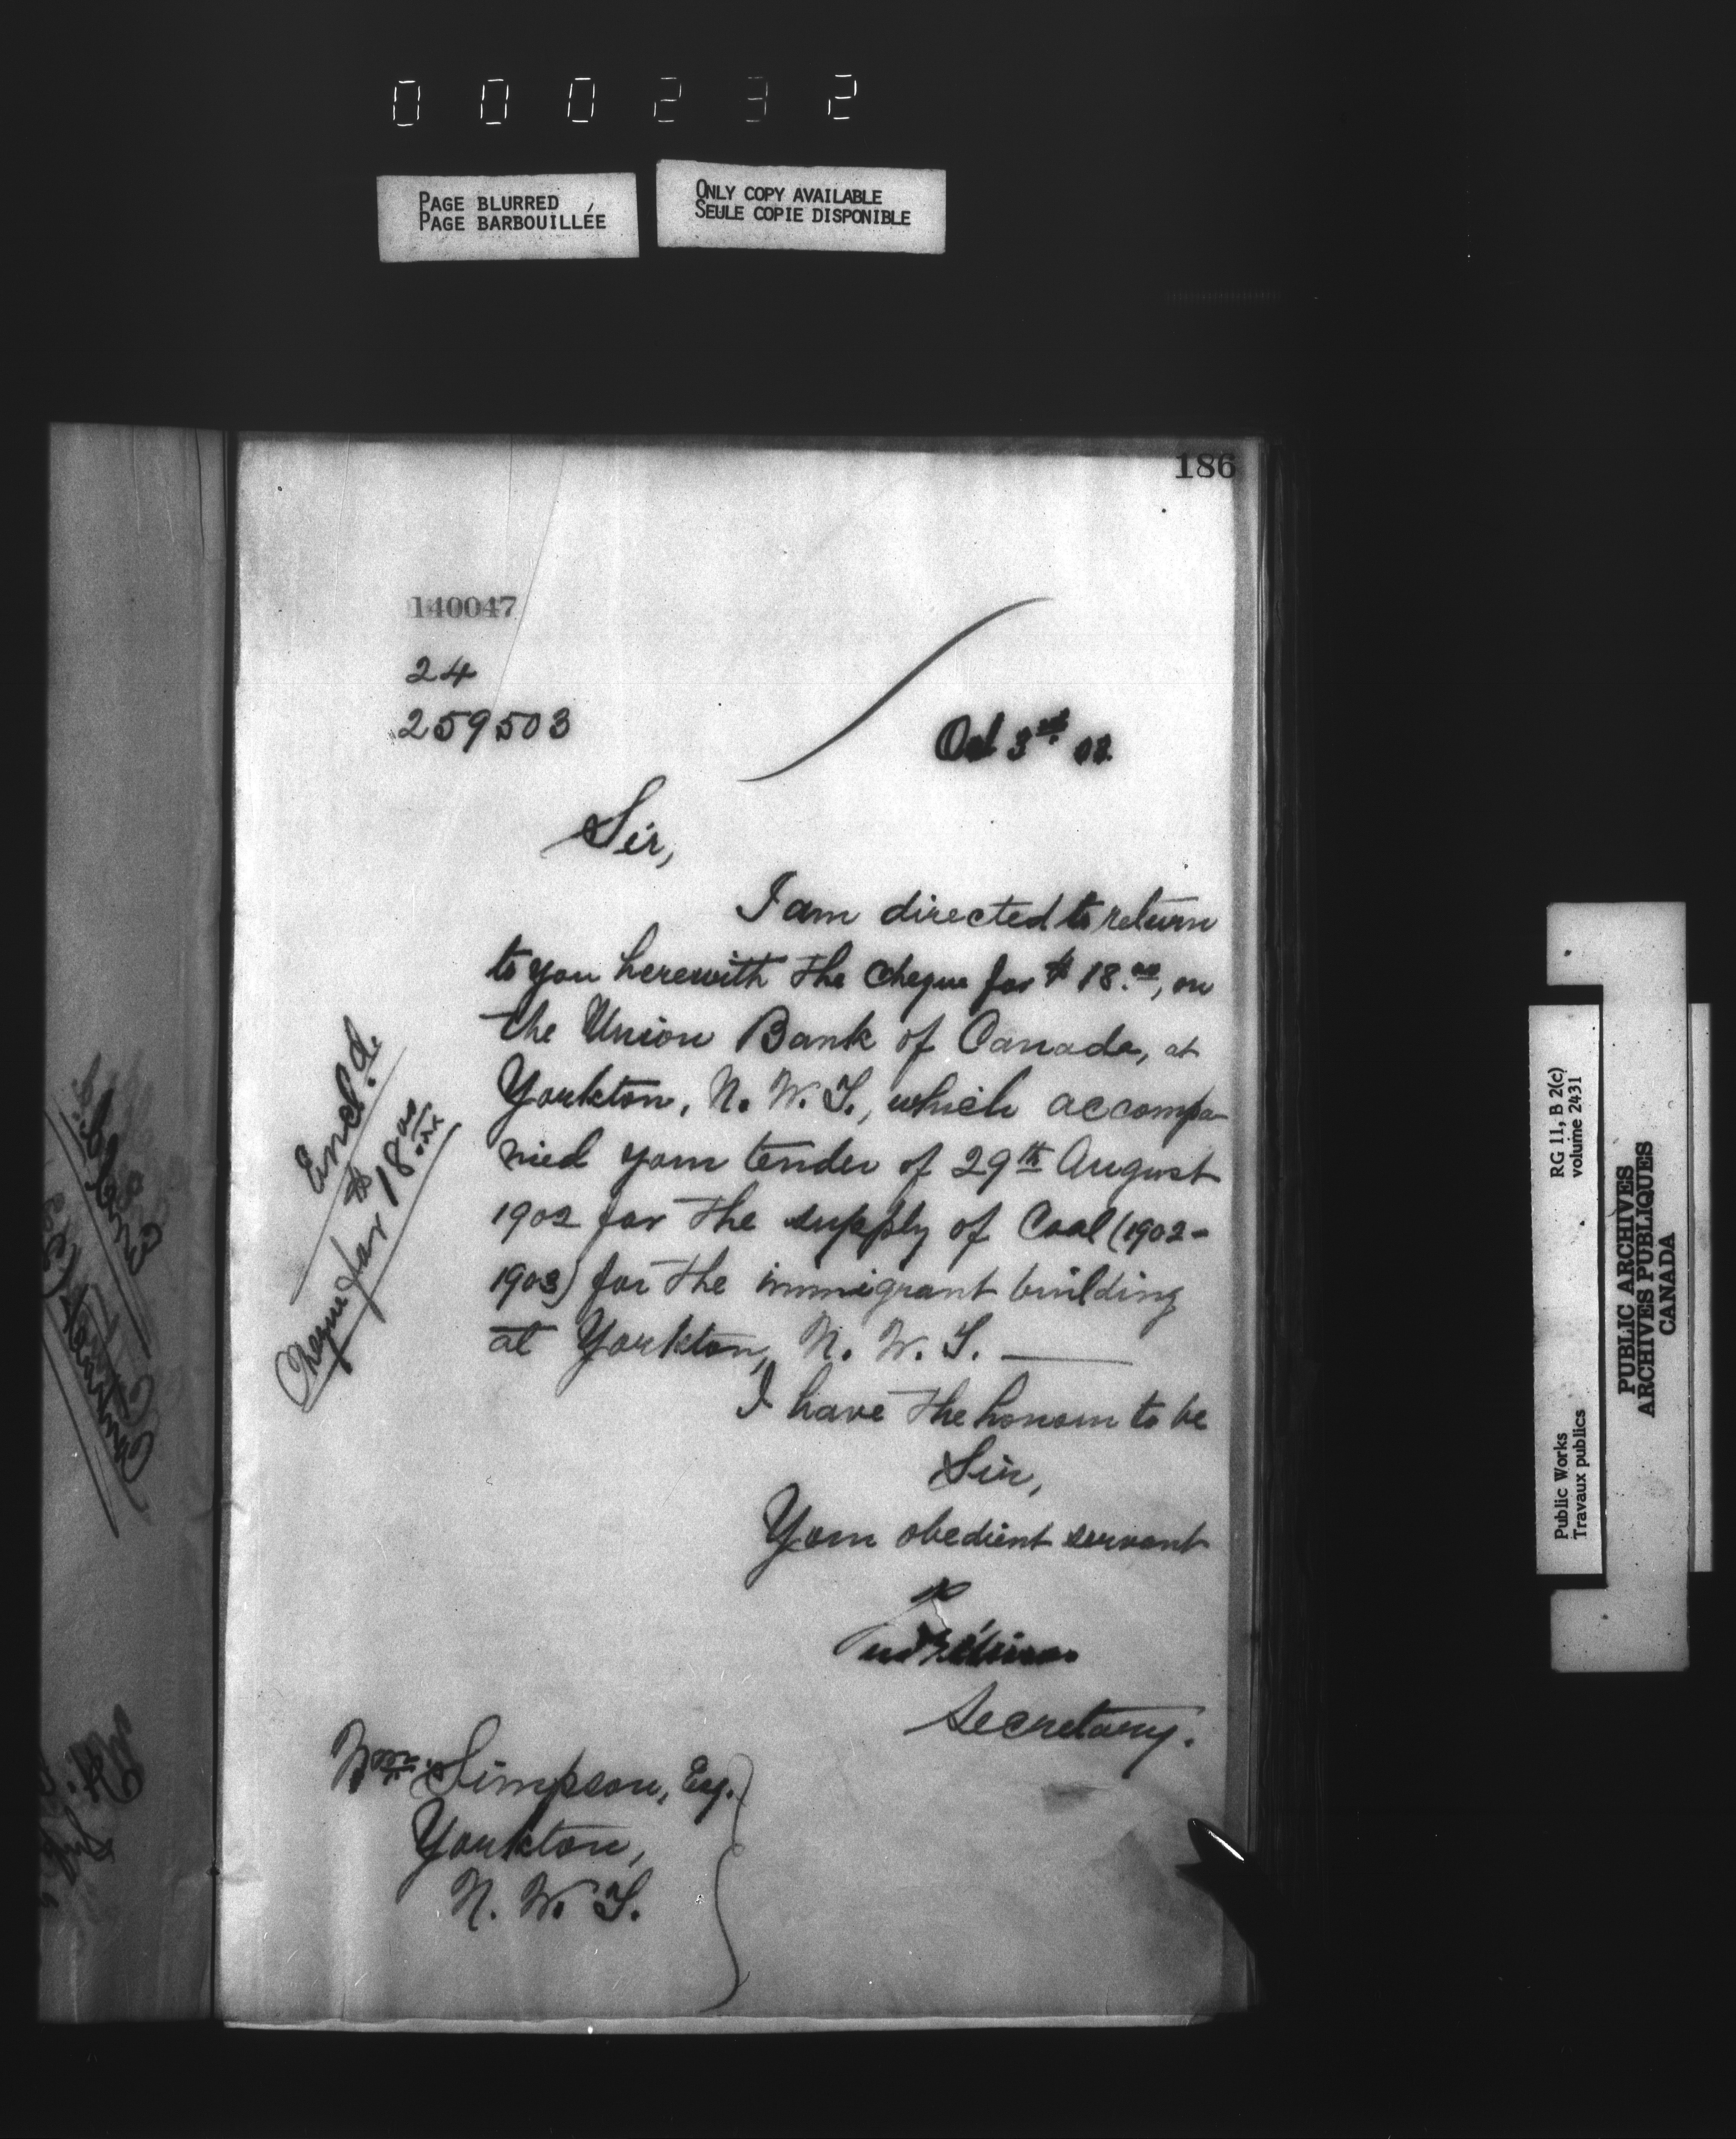 000232
PAGE BLURRED
PAGE BARBOUILLÉE
ONLY COPY AVAILABLE
SEULE COPIE DISPONIBLE
186
140047
24
259503
Oct 3rd 02
Sir,
I am directed to return
to you herewith the cheque for $18.00, on
the Union Bank of Canada, at
Yorkton, N. W. T., which accompa-
nied your tender of 29th August
1902 for the supply of Coal (1902-
1903) for the immigrant building
at Yorkton, N. W. T. —
I have the honour to be
Sir,
Your obedient servant
Secretary.
Encl'd.
Cheque for $18.00/xx
Wm Simpson, Esq.
Yorkton,
N. W. T.
Public Works
Travaux publics
RG 11, B 2(c)
volume 2431
PUBLIC ARCHIVES
ARCHIVES PUBLIQUES
CANADA